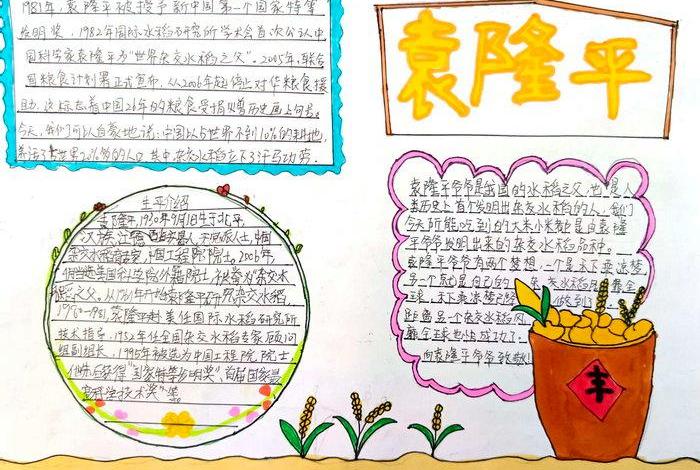 1981年，袁隆平被授予新中国第一个国家特等
发明奖，1982年国际水稻研究所学术会首次公认中
国科学家袁隆平为“世界杂交水稻之父”。2005年，联合
国粮食计划署正式宣布，从2006年起停止对华粮食援
助，这标志着中国26年的粮食受捐赠历史画上句号。
今天，我们可以自豪地说：中国以占世界不到10%的耕地，
养活了占世界20%多的人口，其中杂交水稻立下了汗马功劳。
袁隆平
生平介绍
袁隆平，1930年9月1日生于北平，
汉族，江西 人，
杂交水稻 ，中国工程院院士。2006年
当选美国科学院外籍院士，被誉为“杂交水
稻之父”。从1964年开始 研究杂交水稻，
1980-1981，袁隆平赴美任国际水稻研究所
技术指导，1982年任全国杂交水稻专家顾问
组副组长，1995年被选为中国工程院院士，
他先后获得“国家特等发明奖”、首届国家最
高科学技术奖”等。
袁隆平爷爷是我国的水稻之父，也是人
类历史上首个发明出杂交水稻的人，我们
今天所能吃到的大米小米都是由袁隆
平爷爷发明出来的杂交水稻品种。
袁隆平爷爷有两个梦想，一个是禾下乘凉梦，
另一个就是自己的 杂交水稻 覆盖全
球，禾下乘凉梦已经 做到了，
距离另一个杂交水稻
盖全球也 成功了，
向袁隆平爷爷致敬！
丰